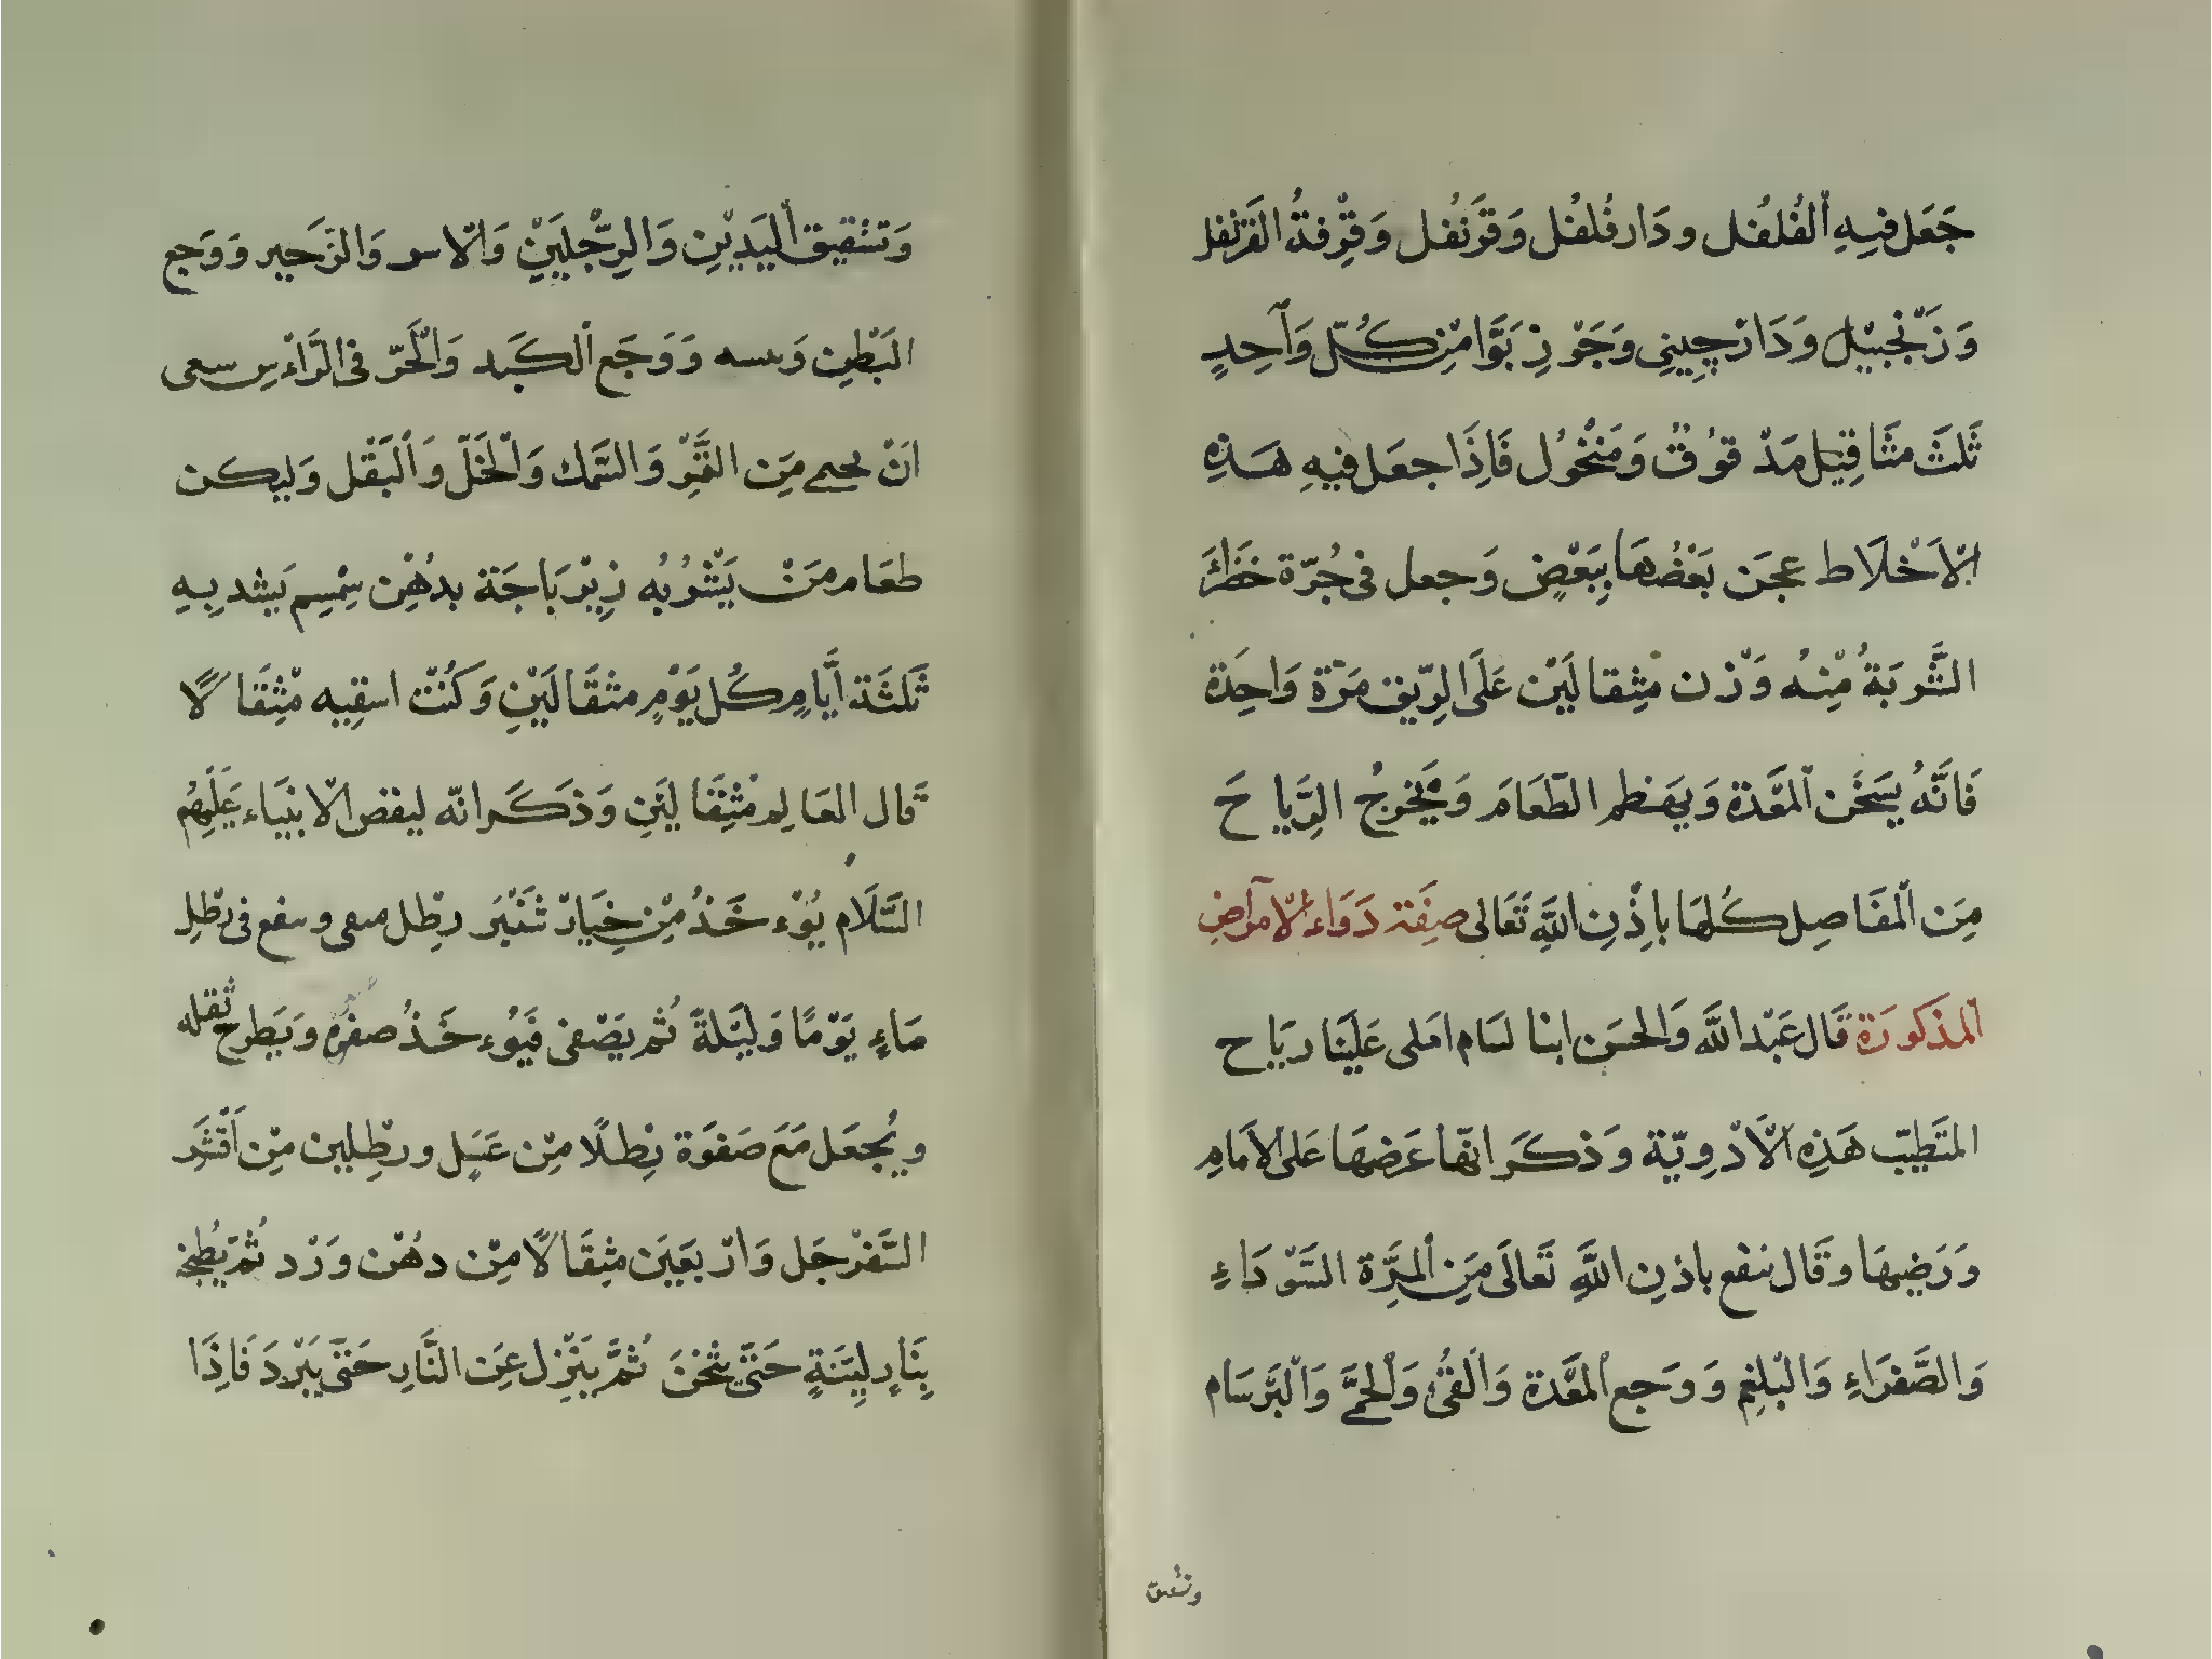 جَعَل فِيهِ اَلْفُلفُل ودَار فُلفُل وَقَرَنْفُل وَقِرْفَةُ الْقَرَنْفُل
وَزَنْجَبِيْل وَدَارْچِينِي وَجَوْزِ بَوَّا مِنْ كُلّ وَاَحِدٍ
ثَلثَ مثَاقِيْل مَدْقوُقٌ وَمَنْخُول فَاِذَا جعَل فِيهِ هَذِهِ
اْلاَخْلَاط عجَن بَعْضُهَا بِبَعْضٍ وَجعل فى جُرّة خَضْرَاءَ
الشَّربَةُ مْنِهُ وَزْن مْثِقالَيْن عَلَى الرِّيق مَرّة وَاحِدَة
فَاِنَّهُ يُسَخّن اَلْمعَّدة وَيهَضْم الطّعَامَ وَيُخْرِجُ الرِّيَاحَ
مِنَ اْلمفَاصِل كُلِهَا باِذْنِ اللَّهِ تَعَالى صِفَة دَوَاء اْلاَمرَاضِ
اَلمذكورَة قَال عَبْد اللَّه وَالحسَن ابنا لسَام امَلى عَلَيْنا ريَاح
المتَطبّب هَذِهِ اْلاَدْوِيّة وَذكَر انّها عَرَضهَا عَلى الاَمامِ
وَرَضِيهَا وقَال ينفع باذنِ اللَّهِ تَعَالَى مِنَ اَلْمِرَّة السَّوْدَاءِ
وَالصَّفَرَاءِ وَالْبلْغم وَوَجَع اَلْمعَّدة وَالَقىُّ وَاَلحْمَّى وَاَلْبَرسَام
وَتشقيق اَلْيَدَيْنِ وَالرِجْليَيْنِ وَاْلاسر وَالزَحير وَوَجع
الْبَطْنِ وَوَجَع اَلكَبَد وَاْلحَرّ فى الَرَاْءْسِ
اَنْ مِنَ التَّمْرِ وَالسَّمك وَاْلخَلّ وَاَلْبَقْل وَليكن
طعَام مَنْ يَشْرُبُه زِيْرَبَاجَة بدُهْنِ سِمْسِم يَشد بِهِ
ثَلثَة أَيَّامٍ كُل يَوْمٍ مثقَالَيْنِ وَكَنُتْ اسقِيه مْثِقَالًا
قَال العَالِم مْثِقَاليَنِ وَذكَر انّه ليفض اْلانِبيَاء عَلَيْهُم
السَّلَام يُوْء خَذُ مِنْ خِيَارْ شَنْبَر رطِل فى رطْلِ
مَاءٍ يَوْمًا وَلَيْلةً ثُم يَصْفى فَيُوْء خَذُ صفوه وَيَطرح ثقله
ويُجْعَل مَعَ صَفوَة رِطلًا مِنْ عَسَل ورطِلين مِنْ اَفْشَر
السَّفرْجَل وَارْبعَيَن مثِقَالًا مِنْ دهُنْ وَرْد ثُم يُطبخ
بِنَارِ لِيَنَةٍ حَتَّى يَثْخُنَ ثُمَّ يَنْزِل عَنِ النَّارِ حَتّى يَبْردَ فَاِذَا